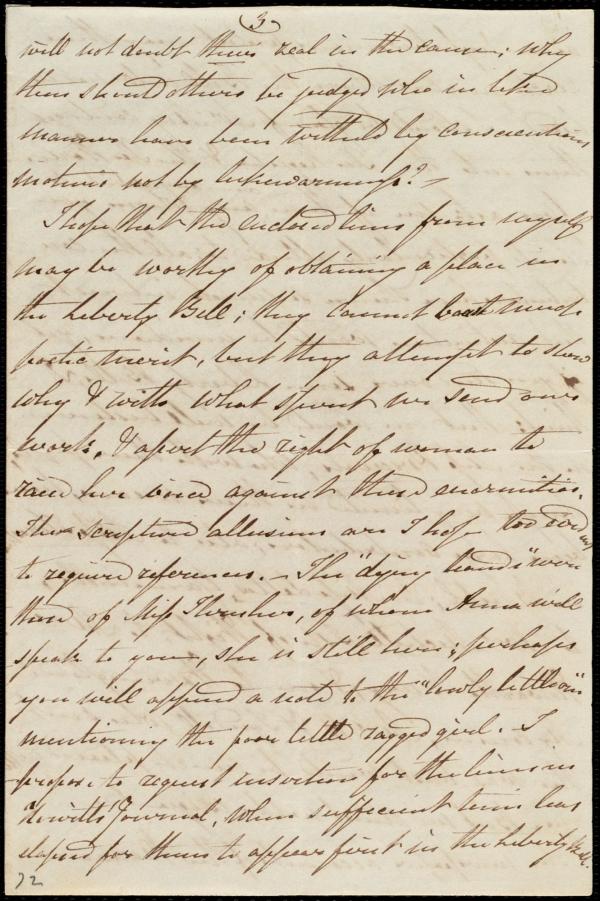 3
will not doubt their zeal in the cause; why
then should others be judged who in like
manner have been withheld by conscientious
motives not by lukewarmness? –
I hope that the enclosed lines from myself
may be worthy of obtaining a place in
the Liberty Bell; they cannot boast much
poetic merit, but they attempt to show
why & with what spirit we send our
work, & assert the right of woman to
raise her voice against these enormities.
The scripture allusions are I hope too evident
to require references. – The "dying hands" were
those of Miss Thrusher, of whom Anna will
speak to you, she is still here; perhaps
you will append a note to the "lowly little one"
mentioning the poor little ragged girl. I
propose to request insertion for the lines in
Howitts' Journal, when sufficient time has
elapsed for them to appear first in the Liberty Bell.
72